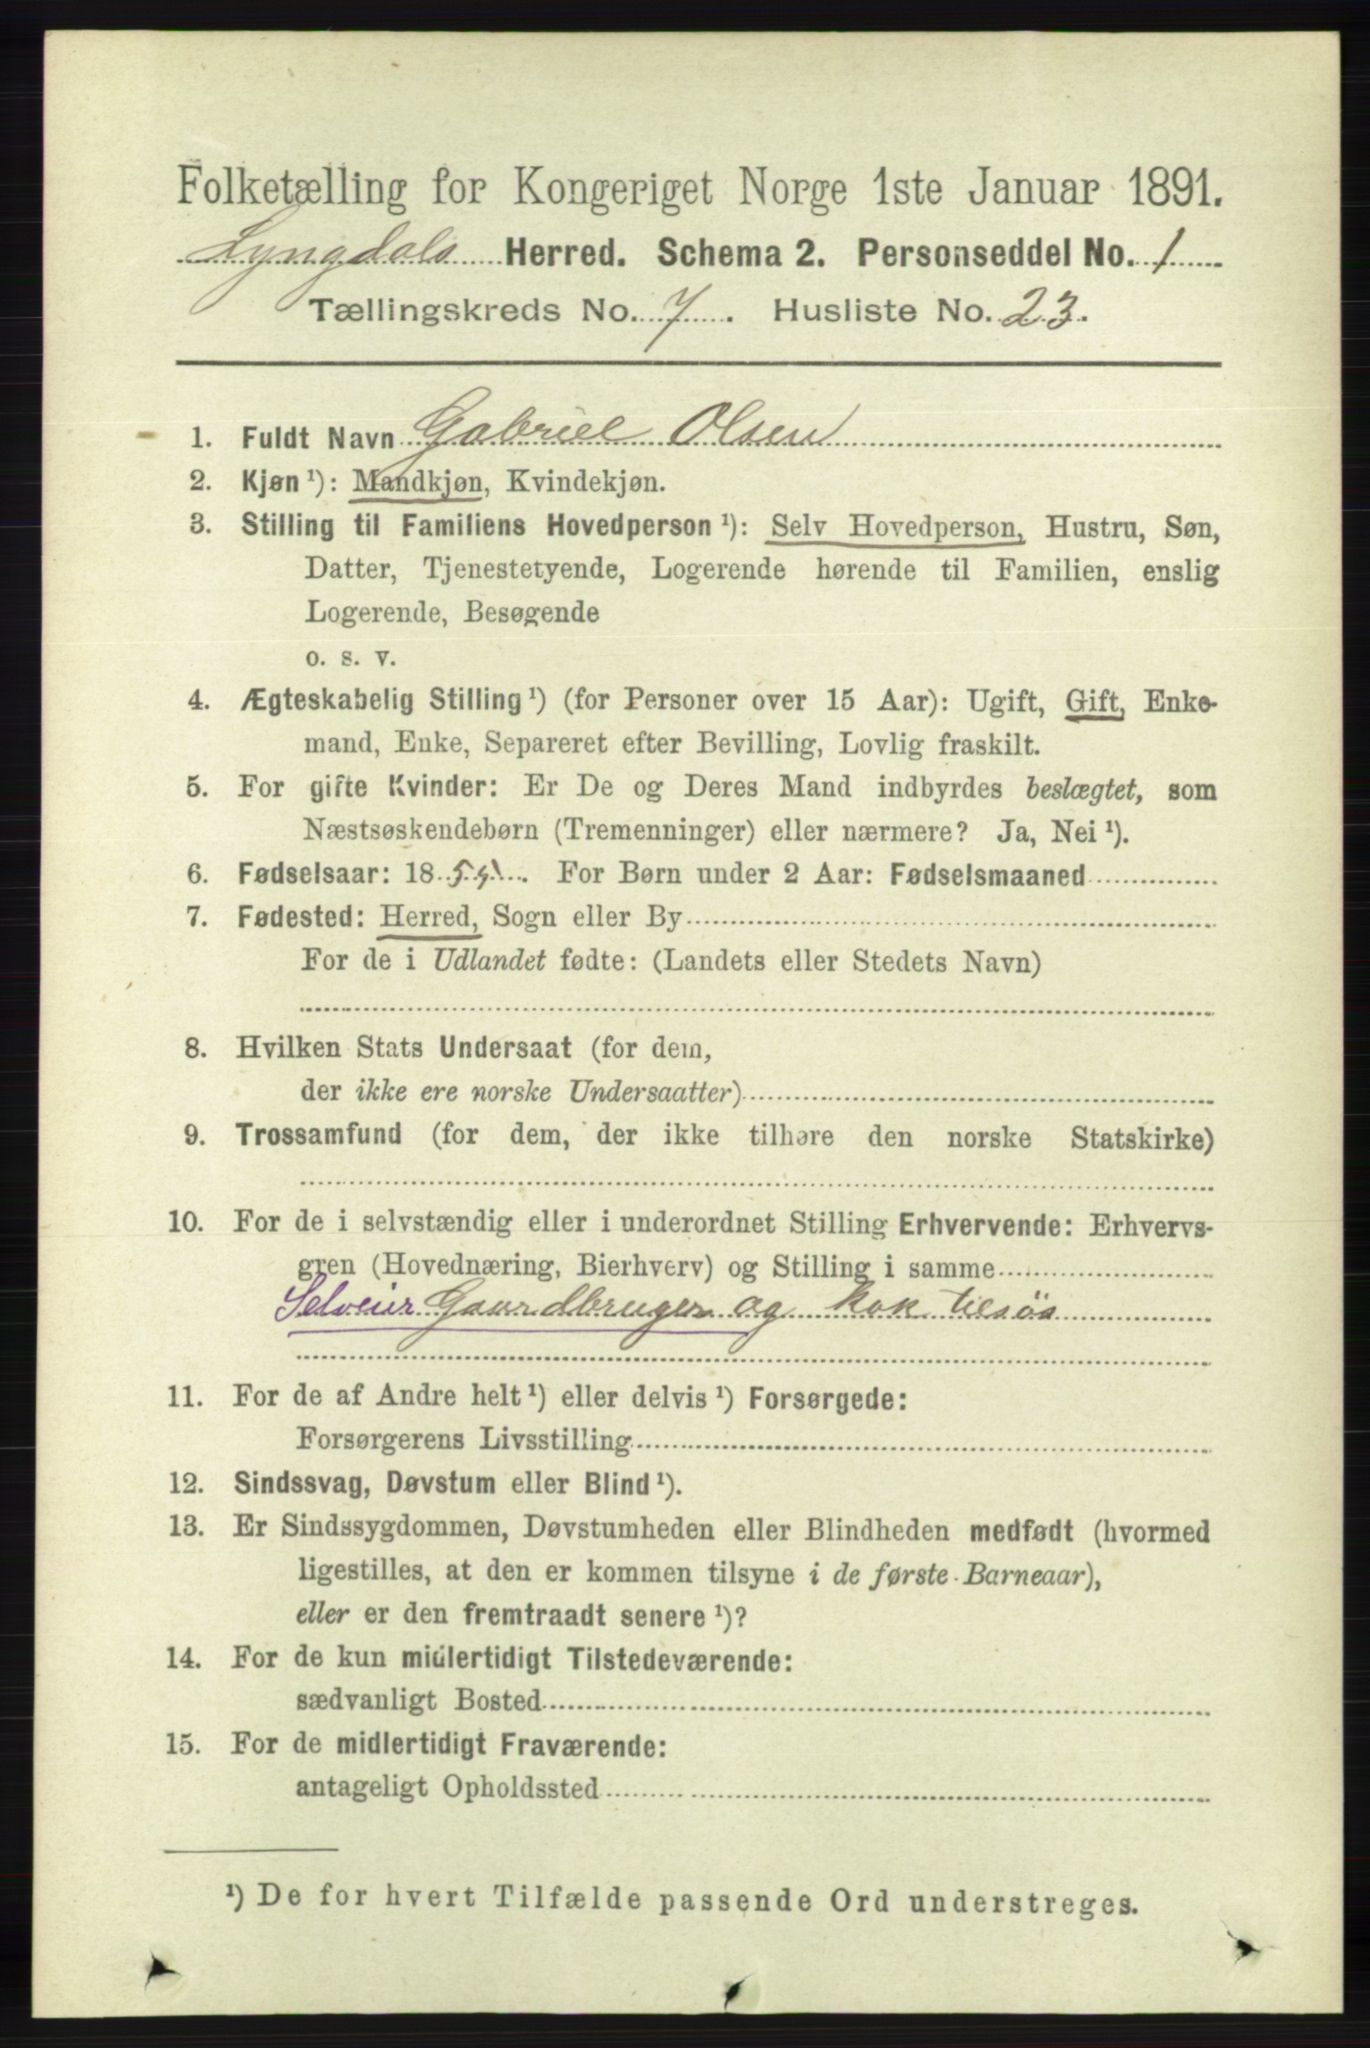 Folketælling for Kongeriget Norge 1ste Januar 1891.
Lyngdals Herred. Schema 2. Personseddel No. 1
Tællingskreds No. 7. Husliste No. 23.
1. Fuldt Navn Gabriel Olsen
2. Kjøn ¹): Mandkjøn, Kvindekjøn.
3. Stilling til Familiens Hovedperson ¹): Selv Hovedperson, Hustru, Søn,
Datter, Tjenestetyende, Logerende hørende til Familien, enslig
Logerende, Besøgende
o. s. v.
4. Ægteskabelig Stilling ¹) (for Personer over 15 Aar): Ugift, Gift, Enke-
mand, Enke, Separeret efter Bevilling, Lovlig fraskilt.
5. For gifte Kvinder: Er De og Deres Mand indbyrdes beslægtet, som
Næstsøskendebørn (Tremenninger) eller nærmere? Ja, Nei ¹).
6. Fødselsaar: 18 For Børn under 2 Aar: Fødselsmaaned
7. Fødested: Herred, Sogn eller By
For de i Udlandet fødte: (Landets eller Stedets Navn)
8. Hvilken Stats Undersaat (for dem,
der ikke ere norske Undersaatter)
9. Trossamfund (for dem, der ikke tilhøre den norske Statskirke)
10. For de i selvstændig eller i underordnet Stilling Erhvervende: Erhvervs-
gren (Hovednæring, Bierhverv) og Stilling i samme
Selveier Gaardbruger og kok tilsøs
11. For de af Andre helt ¹) eller delvis ¹) Forsørgede:
Forsørgerens Livsstilling
12. Sindssvag, Døvstum eller Blind ¹).
13. Er Sindssygdommen, Døvstumheden eller Blindheden medfødt (hvormed
ligestilles, at den er kommen tilsyne i de første Barneaar),
eller er den fremtraadt senere ¹)?
14. For de kun midlertidigt Tilstedeværende:
sædvanligt Bosted
15. For de midlertidigt Fraværende:
antageligt Opholdssted
¹) De for hvert Tilfælde passende Ord understreges.